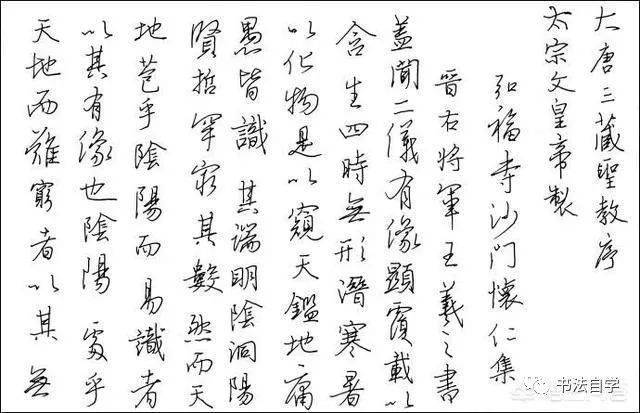 大唐三藏聖教序
太宗文皇帝製
弘福寺沙门懷仁集
晉右將軍王羲之書
蓋聞二儀有像顯覆載以
含生四時無形潛寒暑
以化物是以窺天鑑地庸
愚皆識其端明陰洞陽
賢哲罕窮其數然而天
地苞乎陰陽而易識者
以其有像也陰陽處乎
天地而難窮者以其無
书法自学